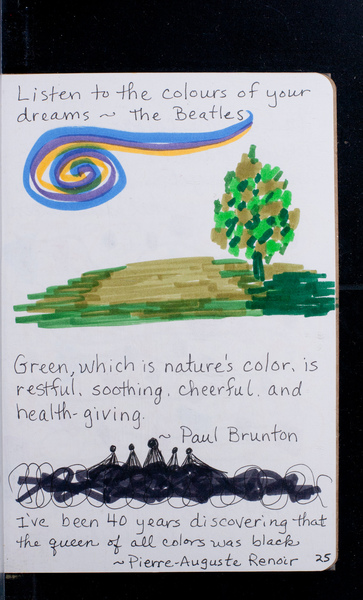 Listen to the colours of your
dreams ~ The Beatles
Green, which is nature's color, is
restful, soothing, cheerful, and
health-giving.
~ Paul Brunton
I've been 40 years discovering that
the queen of all colors was black.
~Pierre-Auguste Renoir 25